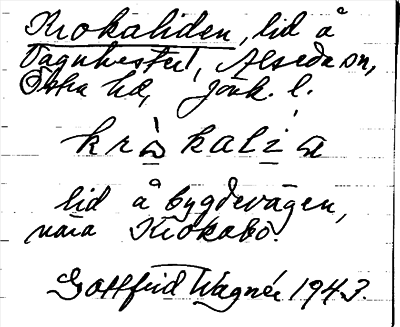 Krokaliden, lid å
Fagerhester, Alseda sn,
Östra hd, Jönk. l.
kròkali a
lid å bygdevägen,
nära Krokabo.
Gottfrid Wagnér 1943.